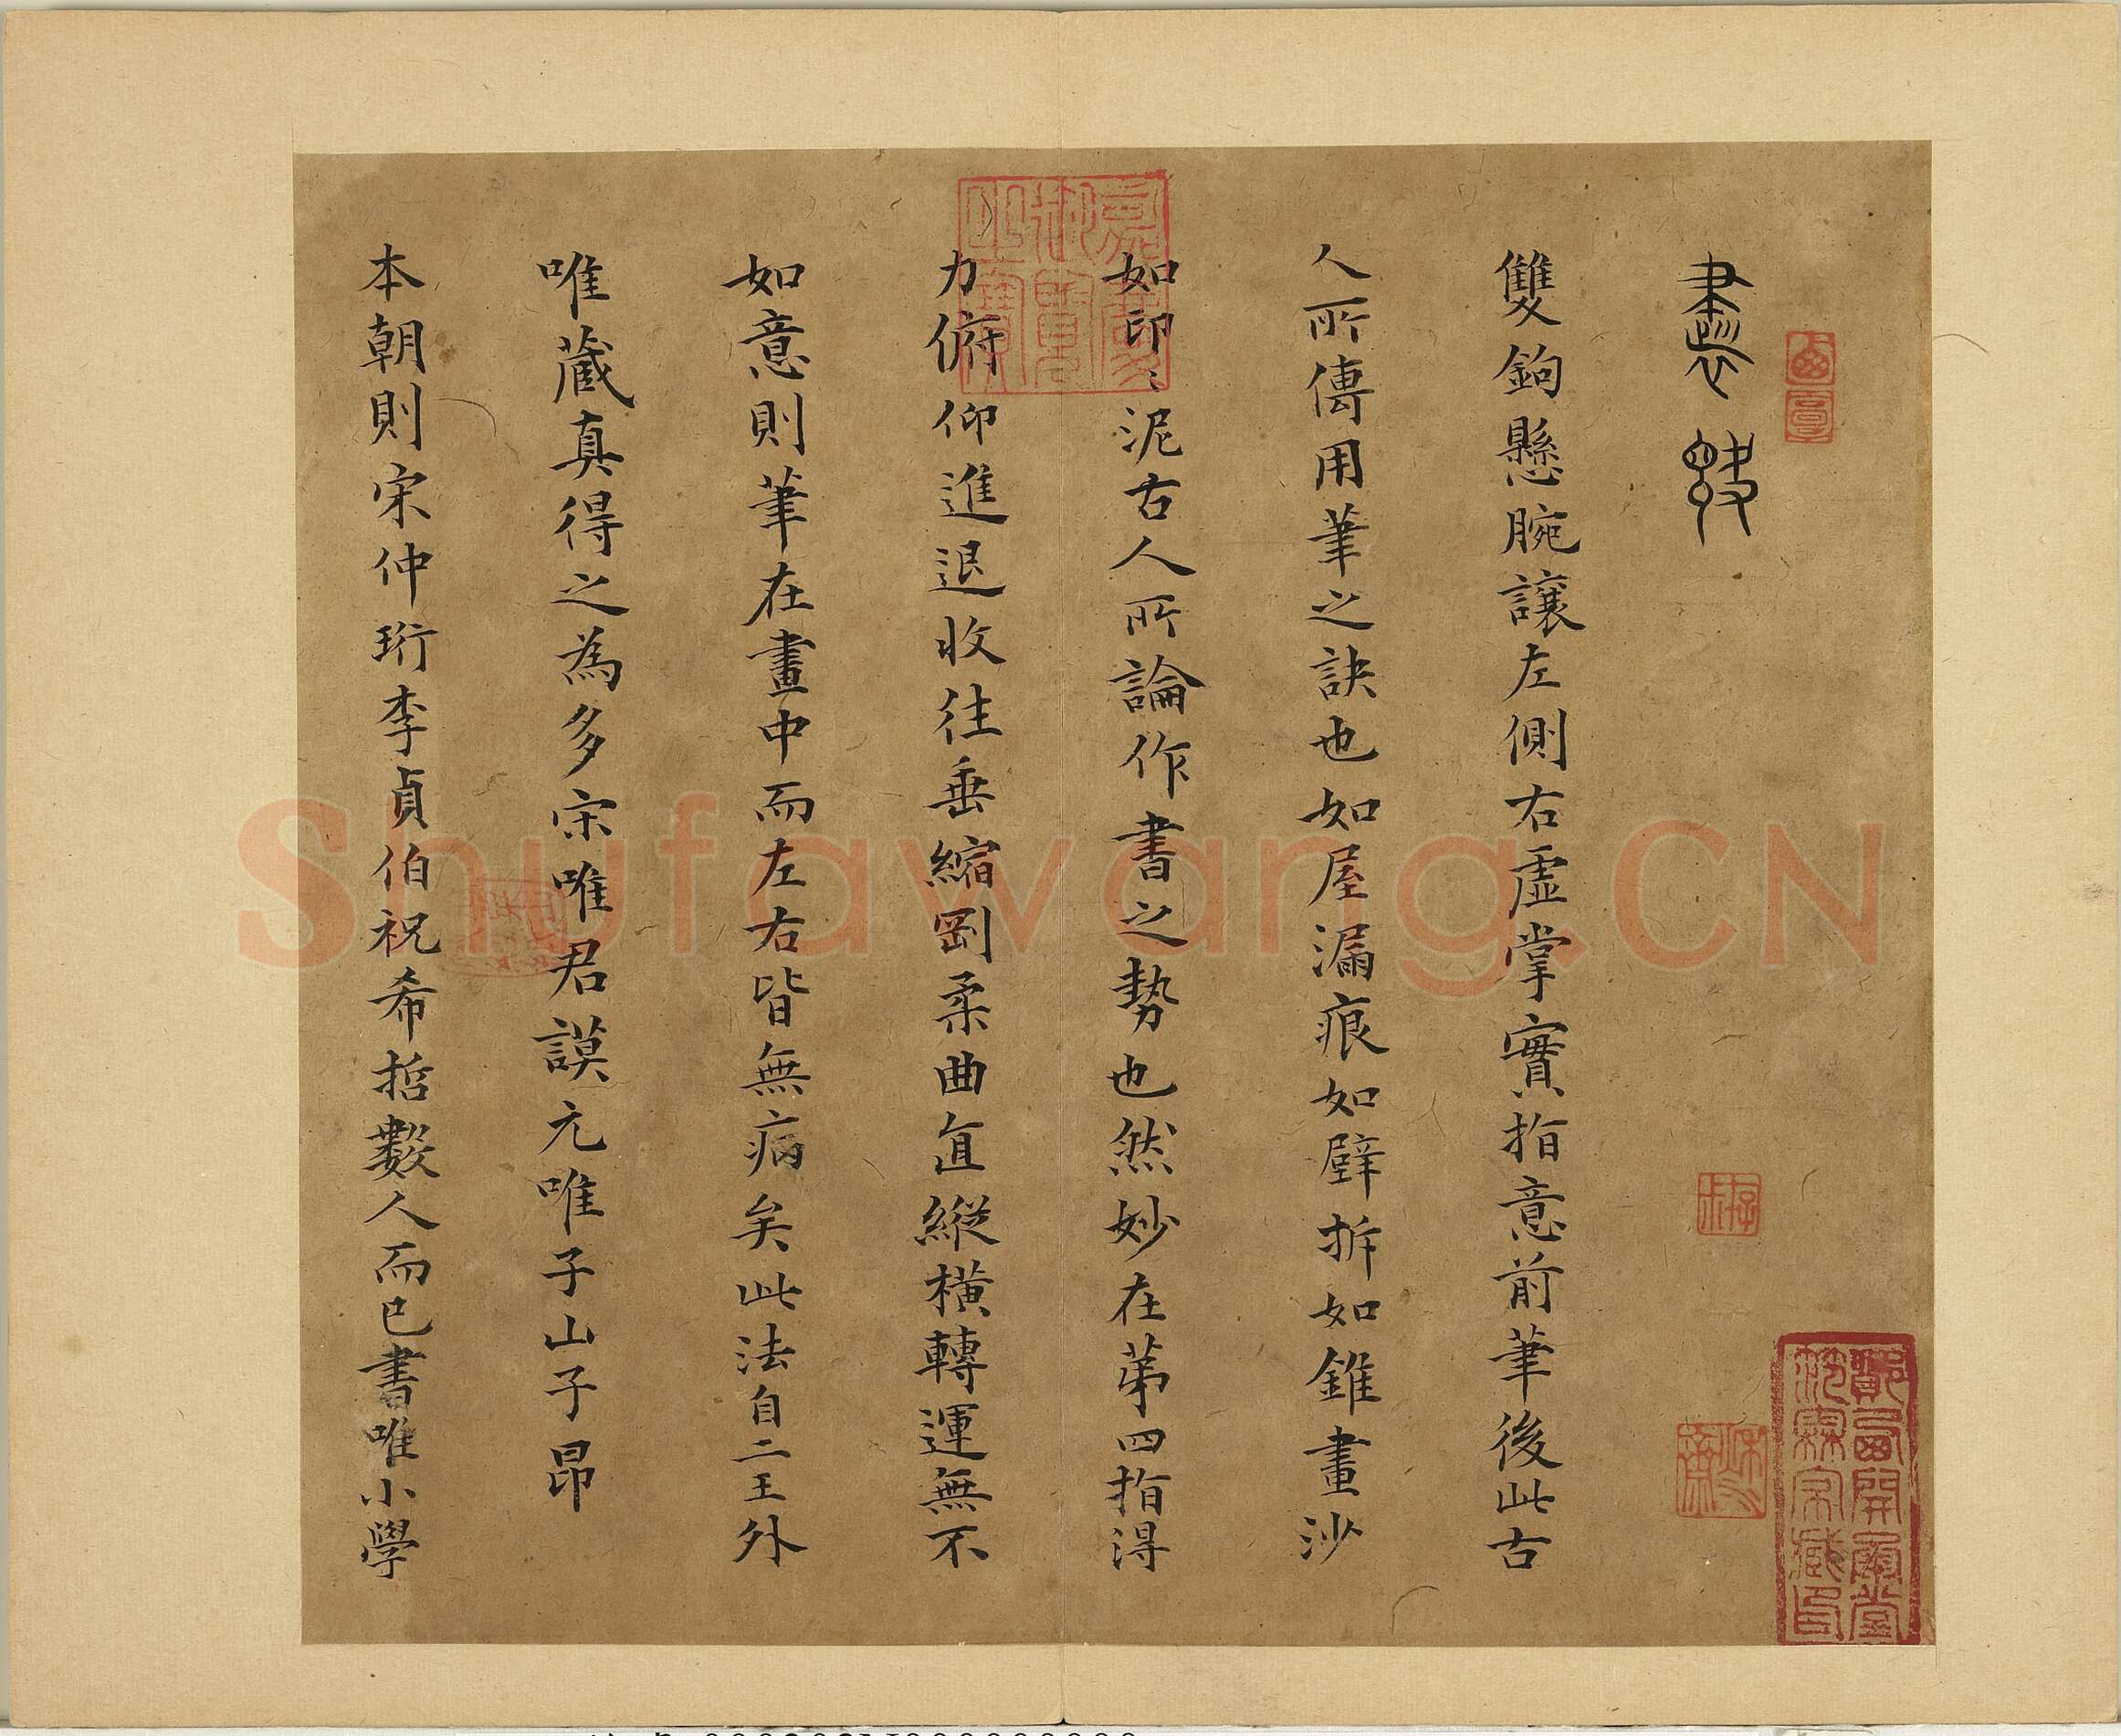 雙鉤懸腕讓左側右虛掌實指意前筆後此古
人所傳用筆之訣也如屋漏痕如壁拆如錐畫沙
如印〻泥古人所論作書之勢也然妙在苐四指得
力俯仰進退收往垂縮剛柔曲直縱橫轉運無不
如意則筆在畫中而左右皆無病矣此法自二王外
唯藏真得之為多宋唯君謨元唯子山子昂
本朝則宋仲珩李貞伯祝希哲數人而已書唯小學
Shufawang.CN